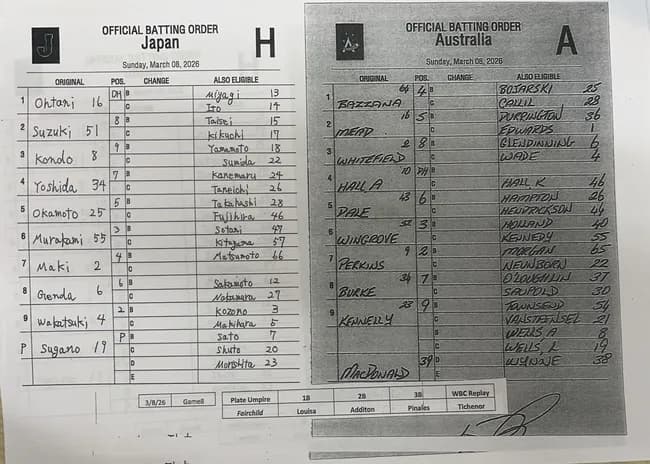 OFFICIAL BATTING ORDER
Japan
H
Sunday, March 08, 2026
ORIGINAL POS. CHANGE ALSO ELIGIBLE
1 Ohtani 16 DH B Miyagi 13
C Ito 14
2 Suzuki 51 8 B Taisei 15
C Kikuchi 17
3 Kondo 8 9 B Yamamoto 18
C Sumida 22
4 Yoshida 34 7 B Kanemaru 24
C Taneichi 26
5 Okamoto 25 5 B Takahashi 28
C Fujihira 46
6 Murakami 55 3 B Sotani 47
C Kitayama 57
7 Maki 2 4 B Matsumoto 66
C
8 Genda 6 6 B Sakamoto 12
C Nakamura 27
9 Wakatsuki 4 2 B Kozono 3
C Makihara 5
P Sugano 19 P B Sato 7
C Shuto 20
D Morishita 23
E
OFFICIAL BATTING ORDER
Australia
A
Sunday, March 08, 2026
ORIGINAL POS. CHANGE ALSO ELIGIBLE
1 BAZZANA 64 4 B BOJARSKI 25
C CALLIL 28
2 MEAD 16 5 B DURRINGTON 36
C EDWARDS 1
3 WHITEFIELD 2 8 B GLENDINNING 6
C WADE 4
4 HALL A 10 DH B
C HALL K 46
5 DALE 43 6 B HAMPTON 26
C HENDRICKSON 44
6 WINGROVE 3 B HOLLAND 40
C KENNEDY 55
7 PERKINS 9 2 B MORGAN 65
C NEUNBORN 22
8 BURKE 34 7 B O'LOUGHLIN 37
C SAUPOLD 30
9 KENNELLY 23 9 B TOWNSEND 54
C VANSTEENSEL 21
B WELLS A 8
C WELLS, L 19
MACDONALD 39 D WYNNE 38
E
3/8/26 Game8 Plate Umpire 1B 2B 3B WBC Replay
Fairchild Louisa Additon Pinales Tichenor